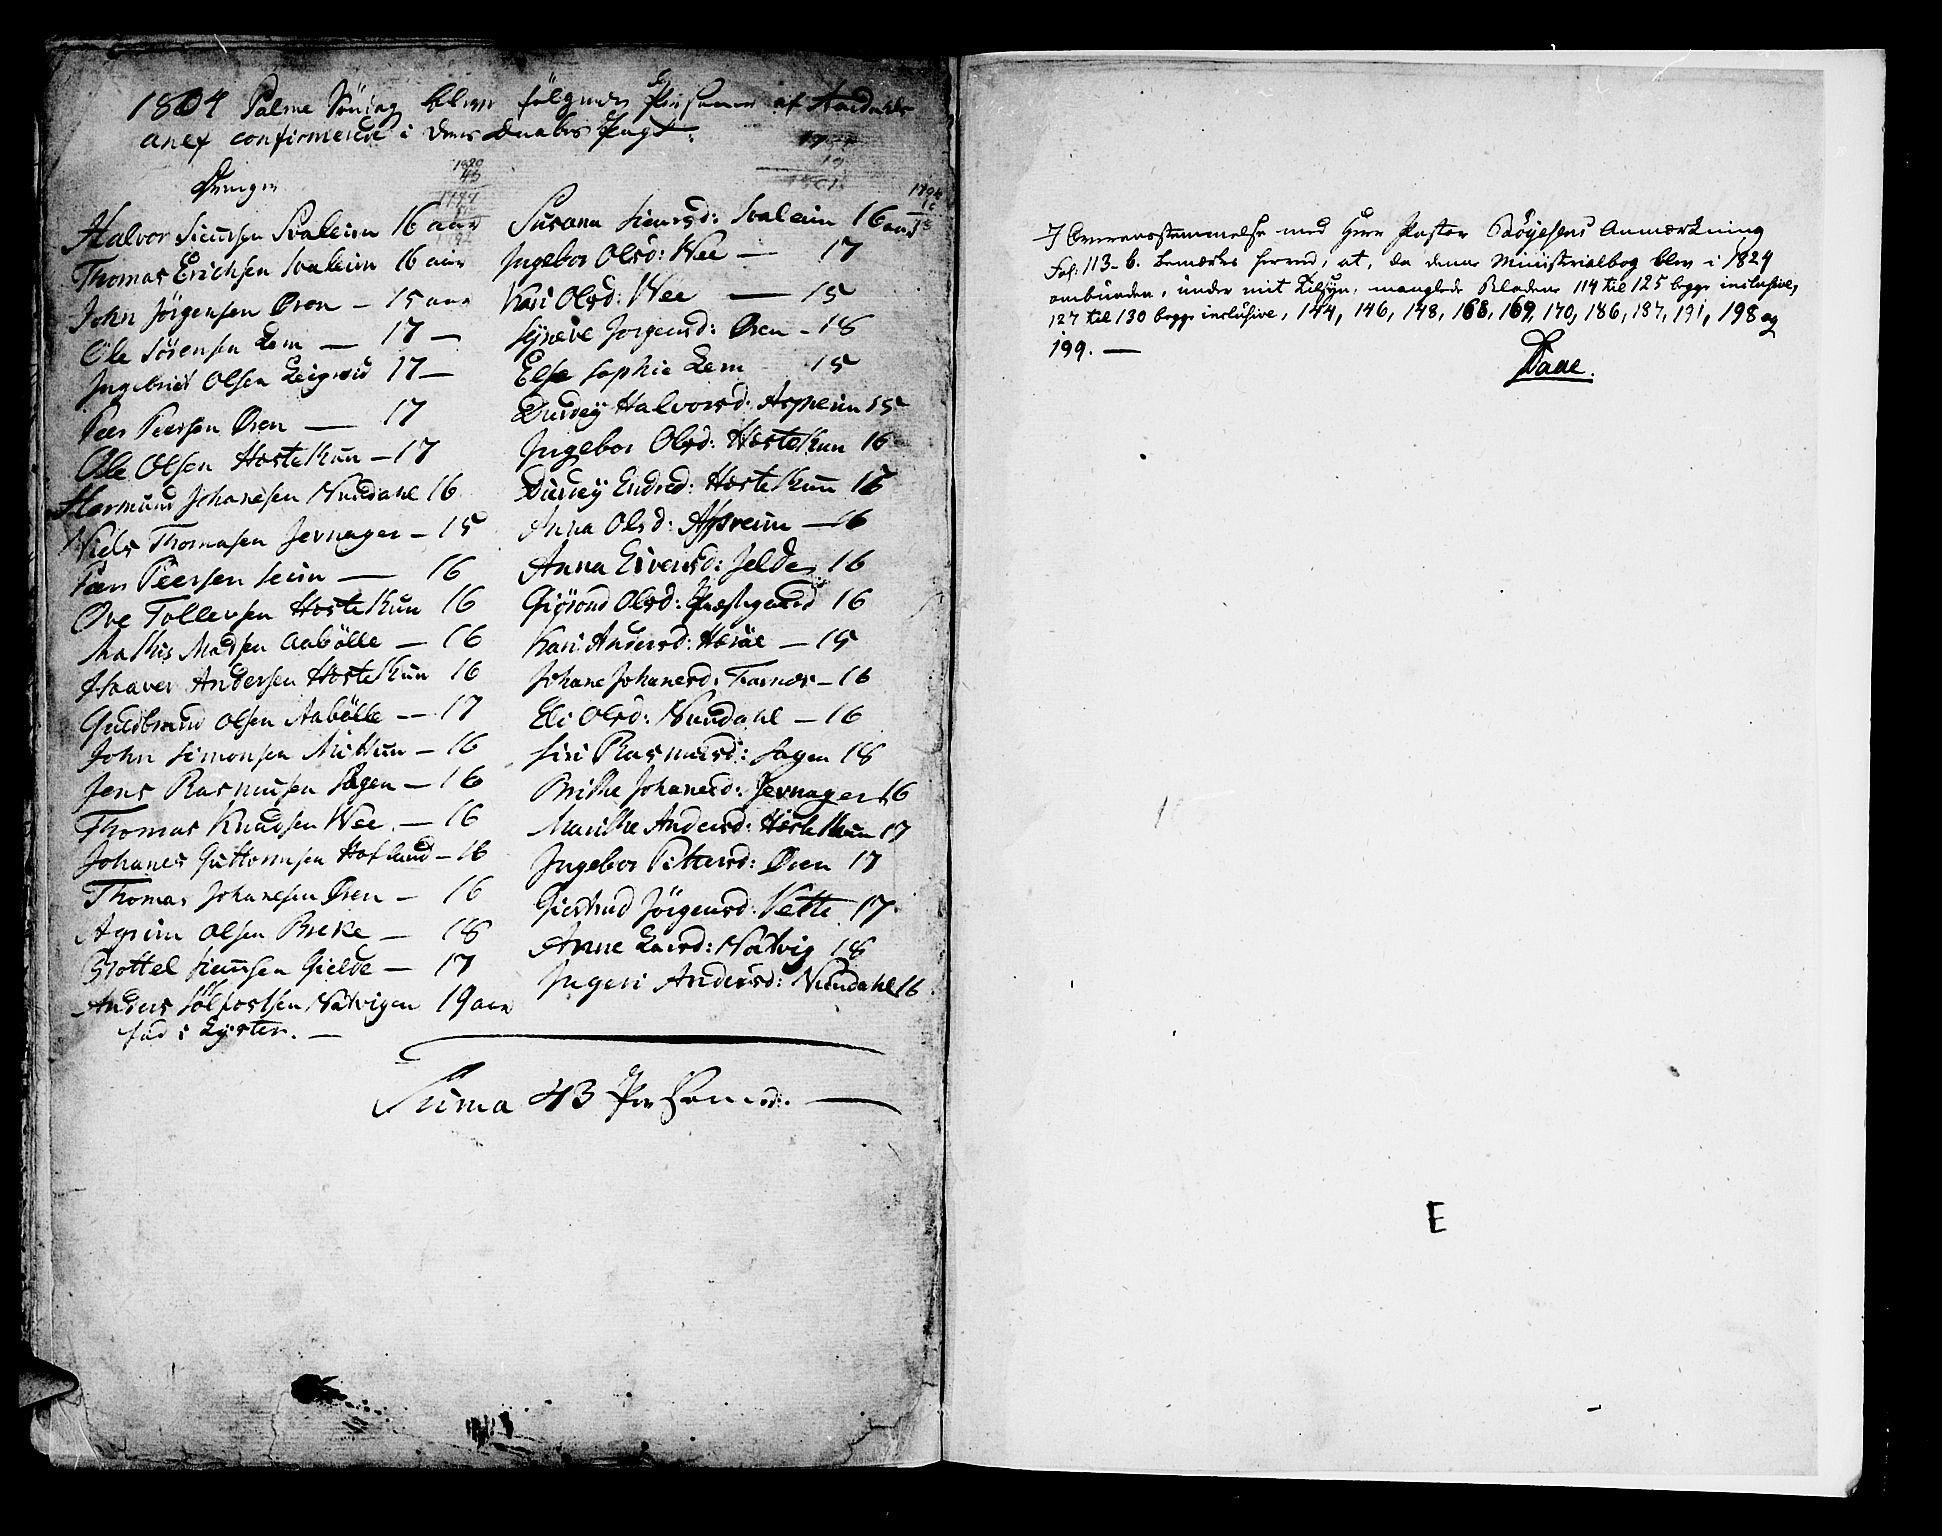 1804 Palme Söndag blev fölgende Personer af Aardals
anex confirmerede i deres Daabes Pagt.
Drenge
Halvor Siursen Svaleim 16 aar
Thomas Erichsen Svaleim 16 aar
John Jörgensen Øren - 15 aar
Ole Sörensen Lem - 17 -
Ingebrigt Olsen 17 -
Peer Peersen Øren - 17
Ole Olsen Hestekun - 17
Hermund Johanesen Nundahl 16
Niels Thomasen Jevnager - 15
Peer Peersen Seim - 16
Ove Tollevsen Hestekun 16
Mathis Madsen Aabölle - 16
Haaver Andersen Hestekun 16
Guldbrand Olsen Aabölle - 17
John Simonsen Mittun - 16
Jens Rasmusen Hagen - 16
Thomas Knudsen Wee - 16
Johanes Guttormsen Hofland - 16
Thomas Johanesen Øren - 16
Asrim Olsen Brekke - 18
Bottel Siursen Gielde - 17
Anders Solfostsen Natvigen 19 aar
fød i Lyster. -
Susana Siursd: Svaleim 16 aar
Ingebor Olsd: Wee - 17
Kari Olsd: Wee - 15
Synneve Jorgensd: Øren - 18
Else Sophie Lem 15
Durdey Halvorsd: Aspheim 15
Ingebor Olsd: Hestekun 16
Durdey Endred: Hestekun 16
Anna Olsd: Afdreim - 16
Anna Eivensd: Jelde 16
Giörond Olsd: Præstegaard 16
Kari Andersd: Hæræe - 15
Johane Johanesd: Farnæs - 16
Eli Olsd: Nundahl - 16
Siri Rasmusd: Hagen 18
Brithe Johanesd: Jevnager 16
Marithe Andersd: Hestekun 17
Ingebor Pettersd: Øren 17
Giertrud Jörgensd: Vette 17
Anne Larsd: Natvig 18
Ingeri Andersd: Nundahl 16
Suma 43 Personer. -
I Overensstemmelse med Herr Pastor Böyesens Anmærkning
Fol: 113-b. bemærkes herved, at, da denne Ministerialbog blev i 1824
ombunden, under mit Tilsyn, manglede Bladene 114 til 125 begge inclusive,
127 til 130 begge inclusive, 144, 146, 148, 168, 169, 170, 186, 187, 191, 198 og
199. -
Daae.
E